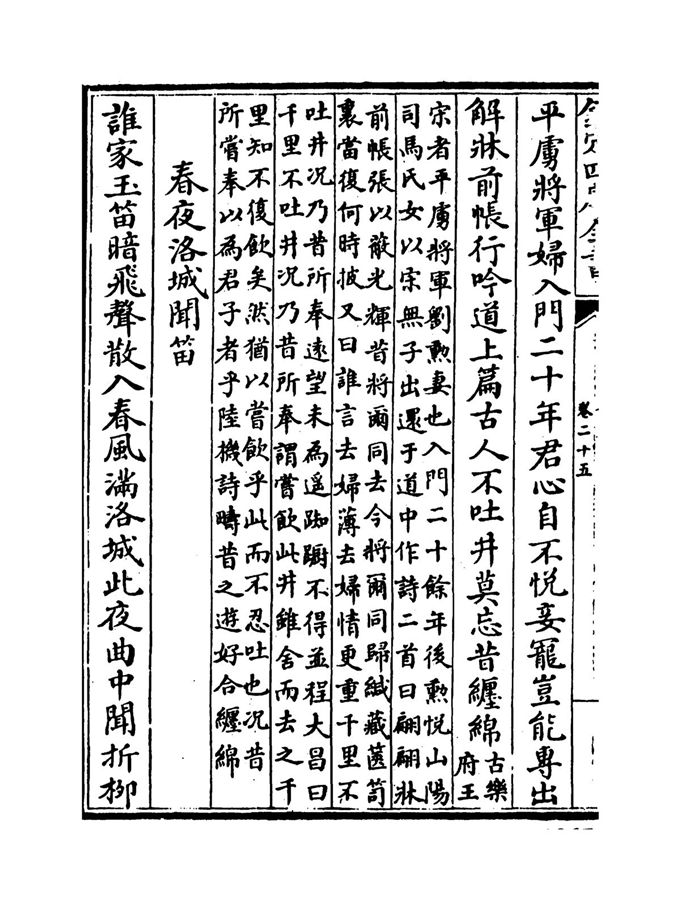 卷二十五
平虜將軍婦入門二十年君心自不悦妾寵豈能專出
解牀前帳行吟道上篇古人不吐井莫忘昔纏綿古樂
府王
宋者平虜將軍劉勲妻也入門二十餘年後勲悦山陽
司馬氏女以宗無子出還于道中作詩二首曰翩翩牀
前帳張以蔽光輝昔將爾同去今將爾同歸緘藏篋笥
裏當復何時披又曰誰言去婦薄去婦情更重千里不
吐井况乃昔所奉遠望未為遥踟蹰不得並程大昌曰
千里不吐井况乃昔所奉謂嘗飲此井雖舍而去之千
里知不復飲矣然猶以嘗飲乎此而不忍吐也况昔
所嘗奉以為君子者乎陸機詩疇昔之遊好合纏綿
春夜洛城聞笛
誰家玉笛暗飛聲散入春風滿洛城此夜曲中聞折栁